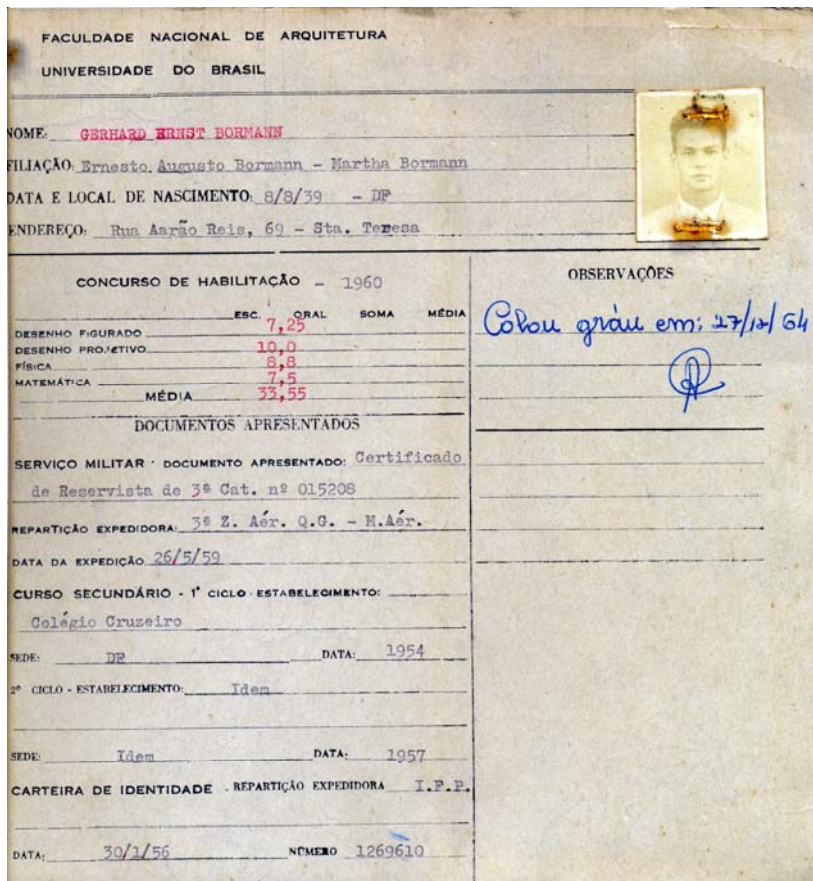 FACULDADE NACIONAL DE ARQUITETURA
UNIVERSIDADE DO BRASIL
NOME: GERHARD ERNST BORMANN
FILIAÇÃO: Ernesto Augusto Bormann - Martha Bormann
DATA E LOCAL DE NASCIMENTO: 8/8/39 - DF
ENDEREÇO: Rua Aarão Reis, 69 - Sta. Teresa
CONCURSO DE HABILITAÇÃO - 1960
ESC. ORAL SOMA MÉDIA
DESENHO FIGURADO 7,25
DESENHO PROJETIVO 10,0
FÍSICA 8,8
MATEMÁTICA 7,5
MÉDIA 33,55
DOCUMENTOS APRESENTADOS
SERVIÇO MILITAR · DOCUMENTO APRESENTADO: Certificado
de Reservista de 3ª Cat. nº 015208
REPARTIÇÃO EXPEDIDORA: 3ª Z. Aér. Q.G. - M.Aér.
DATA DA EXPEDIÇÃO 26/5/59
CURSO SECUNDÁRIO - 1º CICLO - ESTABELECIMENTO:
Colégio Cruzeiro
SEDE: DF DATA: 1954
2º CICLO - ESTABELECIMENTO: Idem
SEDE: Idem DATA: 1957
CARTEIRA DE IDENTIDADE - REPARTIÇÃO EXPEDIDORA I.F.P.
DATA: 30/1/56 NÚMERO 1269610
OBSERVAÇÕES
Colou gráu em: 27/12/64